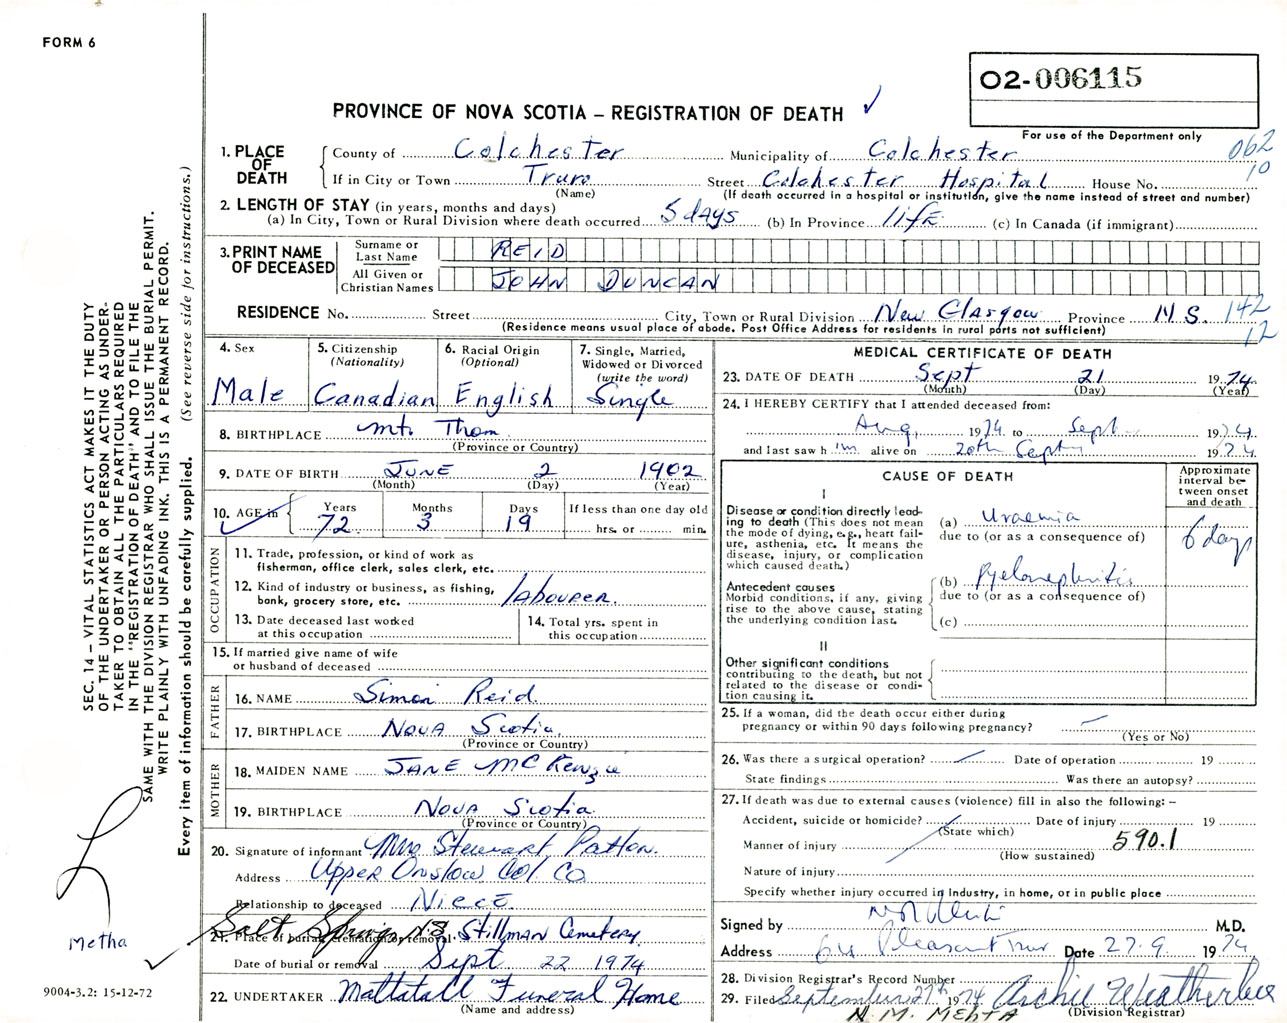 FORM 6
02-006115
For use of the Department only
PROVINCE OF NOVA SCOTIA – REGISTRATION OF DEATH ✓
062
10
1. PLACE OF DEATH
County of Colchester Municipality of Colchester
If in City or Town Truro Street Colchester Hospital House No.
(Name) (If death occurred in a hospital or institution, give the name instead of street and number)
2. LENGTH OF STAY (in years, months and days)
(a) In City, Town or Rural Division where death occurred 5 days (b) In Province life (c) In Canada (if immigrant)
3. PRINT NAME OF DECEASED
Surname or Last Name REID
All Given or Christian Names JOHN DUNCAN
RESIDENCE No. Street City, Town or Rural Division New Glasgow Province N.S. 142
12
(Residence means usual place of abode. Post Office Address for residents in rural parts not sufficient)
4. Sex
Male
5. Citizenship
(Nationality)
Canadian
6. Racial Origin
(Optional)
English
7. Single, Married,
Widowed or Divorced
(write the word)
Single
8. BIRTHPLACE Mt. Thom
(Province or Country)
9. DATE OF BIRTH JUNE 2 1902
(Month) (Day) (Year)
10. AGE in Years 72 Months 3 Days 19
If less than one day old
hrs. or min.
OCCUPATION
11. Trade, profession, or kind of work as
fisherman, office clerk, sales clerk, etc.
12. Kind of industry or business, as fishing,
bank, grocery store, etc. labourer.
13. Date deceased last worked
at this occupation
14. Total yrs. spent in
this occupation
15. If married give name of wife
or husband of deceased
FATHER
16. NAME Simon Reid
17. BIRTHPLACE Nova Scotia
(Province or Country)
MOTHER
18. MAIDEN NAME JANE McKenzie
19. BIRTHPLACE Nova Scotia
(Province or Country)
20. Signature of informant Mrs Stewart Patton.
Address Upper Onslow Col. Co
Relationship to deceased Niece
21. Place of burial cremation or removal Salt Springs N.S. Stillman Cemetery
Date of burial or removal Sept 22 1974
22. UNDERTAKER Mattatall Funeral Home
(Name and address)
MEDICAL CERTIFICATE OF DEATH
23. DATE OF DEATH Sept 21 1974
(Month) (Day) (Year)
24. I HEREBY CERTIFY that I attended deceased from:
Aug. 1974 to Sept 1974
and last saw h im alive on 20th Sept 1974
CAUSE OF DEATH
Approximate
interval be-
tween onset
and death
I
Disease or condition directly lead-
ing to death (This does not mean
the mode of dying, e.g., heart fail-
ure, asthenia, etc. It means the
disease, injury, or complication
which caused death.)
(a) Uraemia
due to (or as a consequence of)
6 days
Antecedent causes
Morbid conditions, if any, giving
rise to the above cause, stating
the underlying condition last.
(b) Pyelonephritis
due to (or as a consequence of)
(c)
II
Other significant conditions
contributing to the death, but not
related to the disease or condi-
tion causing it.
25. If a woman, did the death occur either during
pregnancy or within 90 days following pregnancy?
(Yes or No)
26. Was there a surgical operation? Date of operation 19
State findings Was there an autopsy?
27. If death was due to external causes (violence) fill in also the following: –
Accident, suicide or homicide? Date of injury 19
(State which)
Manner of injury 590.1
(How sustained)
Nature of injury
Specify whether injury occurred in Industry, in home, or in public place
Signed by M.D.
Address 64 Pleasant Truro Date 27.9. 1974
28. Division Registrar's Record Number
29. Filed September 27th 1974 Archie Weatherbee
(Division Registrar)
N. M. MEHTA
SEC. 14 – VITAL STATISTICS ACT MAKES IT THE DUTY
OF THE UNDERTAKER OR PERSON ACTING AS UNDER-
TAKER TO OBTAIN ALL THE PARTICULARS REQUIRED
IN THE "REGISTRATION OF DEATH" AND TO FILE THE
SAME WITH THE DIVISION REGISTRAR WHO SHALL ISSUE THE BURIAL PERMIT.
WRITE PLAINLY WITH UNFADING INK. THIS IS A PERMANENT RECORD.
Every item of information should be carefully supplied. (See reverse side for instructions.)
Metha
✓
9004-3.2: 15-12-72